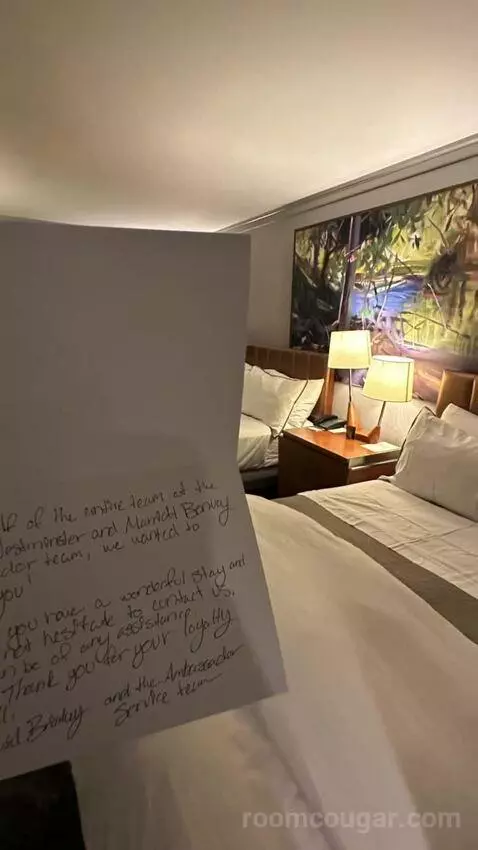 of the entire team at the
Westminster and Marriott Bonvoy
team, we wanted to
you
you have a wonderful stay and
not hesitate to contact us,
be of any assistance.
Thank you for your loyalty
Bonvoy and the Ambassador
Service team
roomcougar.com